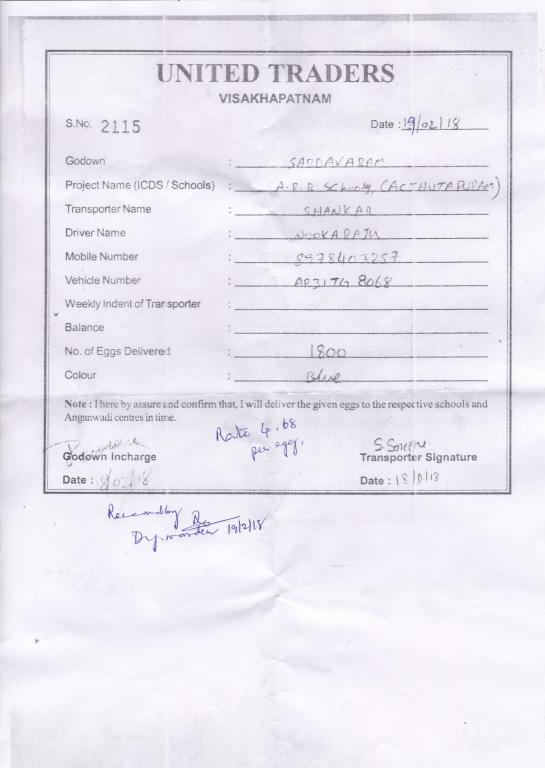 UNITED TRADERS
VISAKHAPATNAM
S.No. 2115 Date : 19/02/18
Godown : SABBAVARAM
Project Name (ICDS / Schools) : A.P.R Schools, (ACTHUTAPURAM)
Transporter Name : SHANKAR
Driver Name : NOOKARAJU
Mobile Number : 8978403257
Vehicle Number : AP31TG 8068
Weekly Indent of Transporter :
Balance :
No. of Eggs Delivered : 1800
Colour : Blue
Note : I here by assure and confirm that, I will deliver the given eggs to the respective schools and
Anganwadi centres in time.
Rate 4.68
per egg.
Godown Incharge Transporter Signature
Date : Date : 18/0/18
Received by
Dy. warden 19/2/18